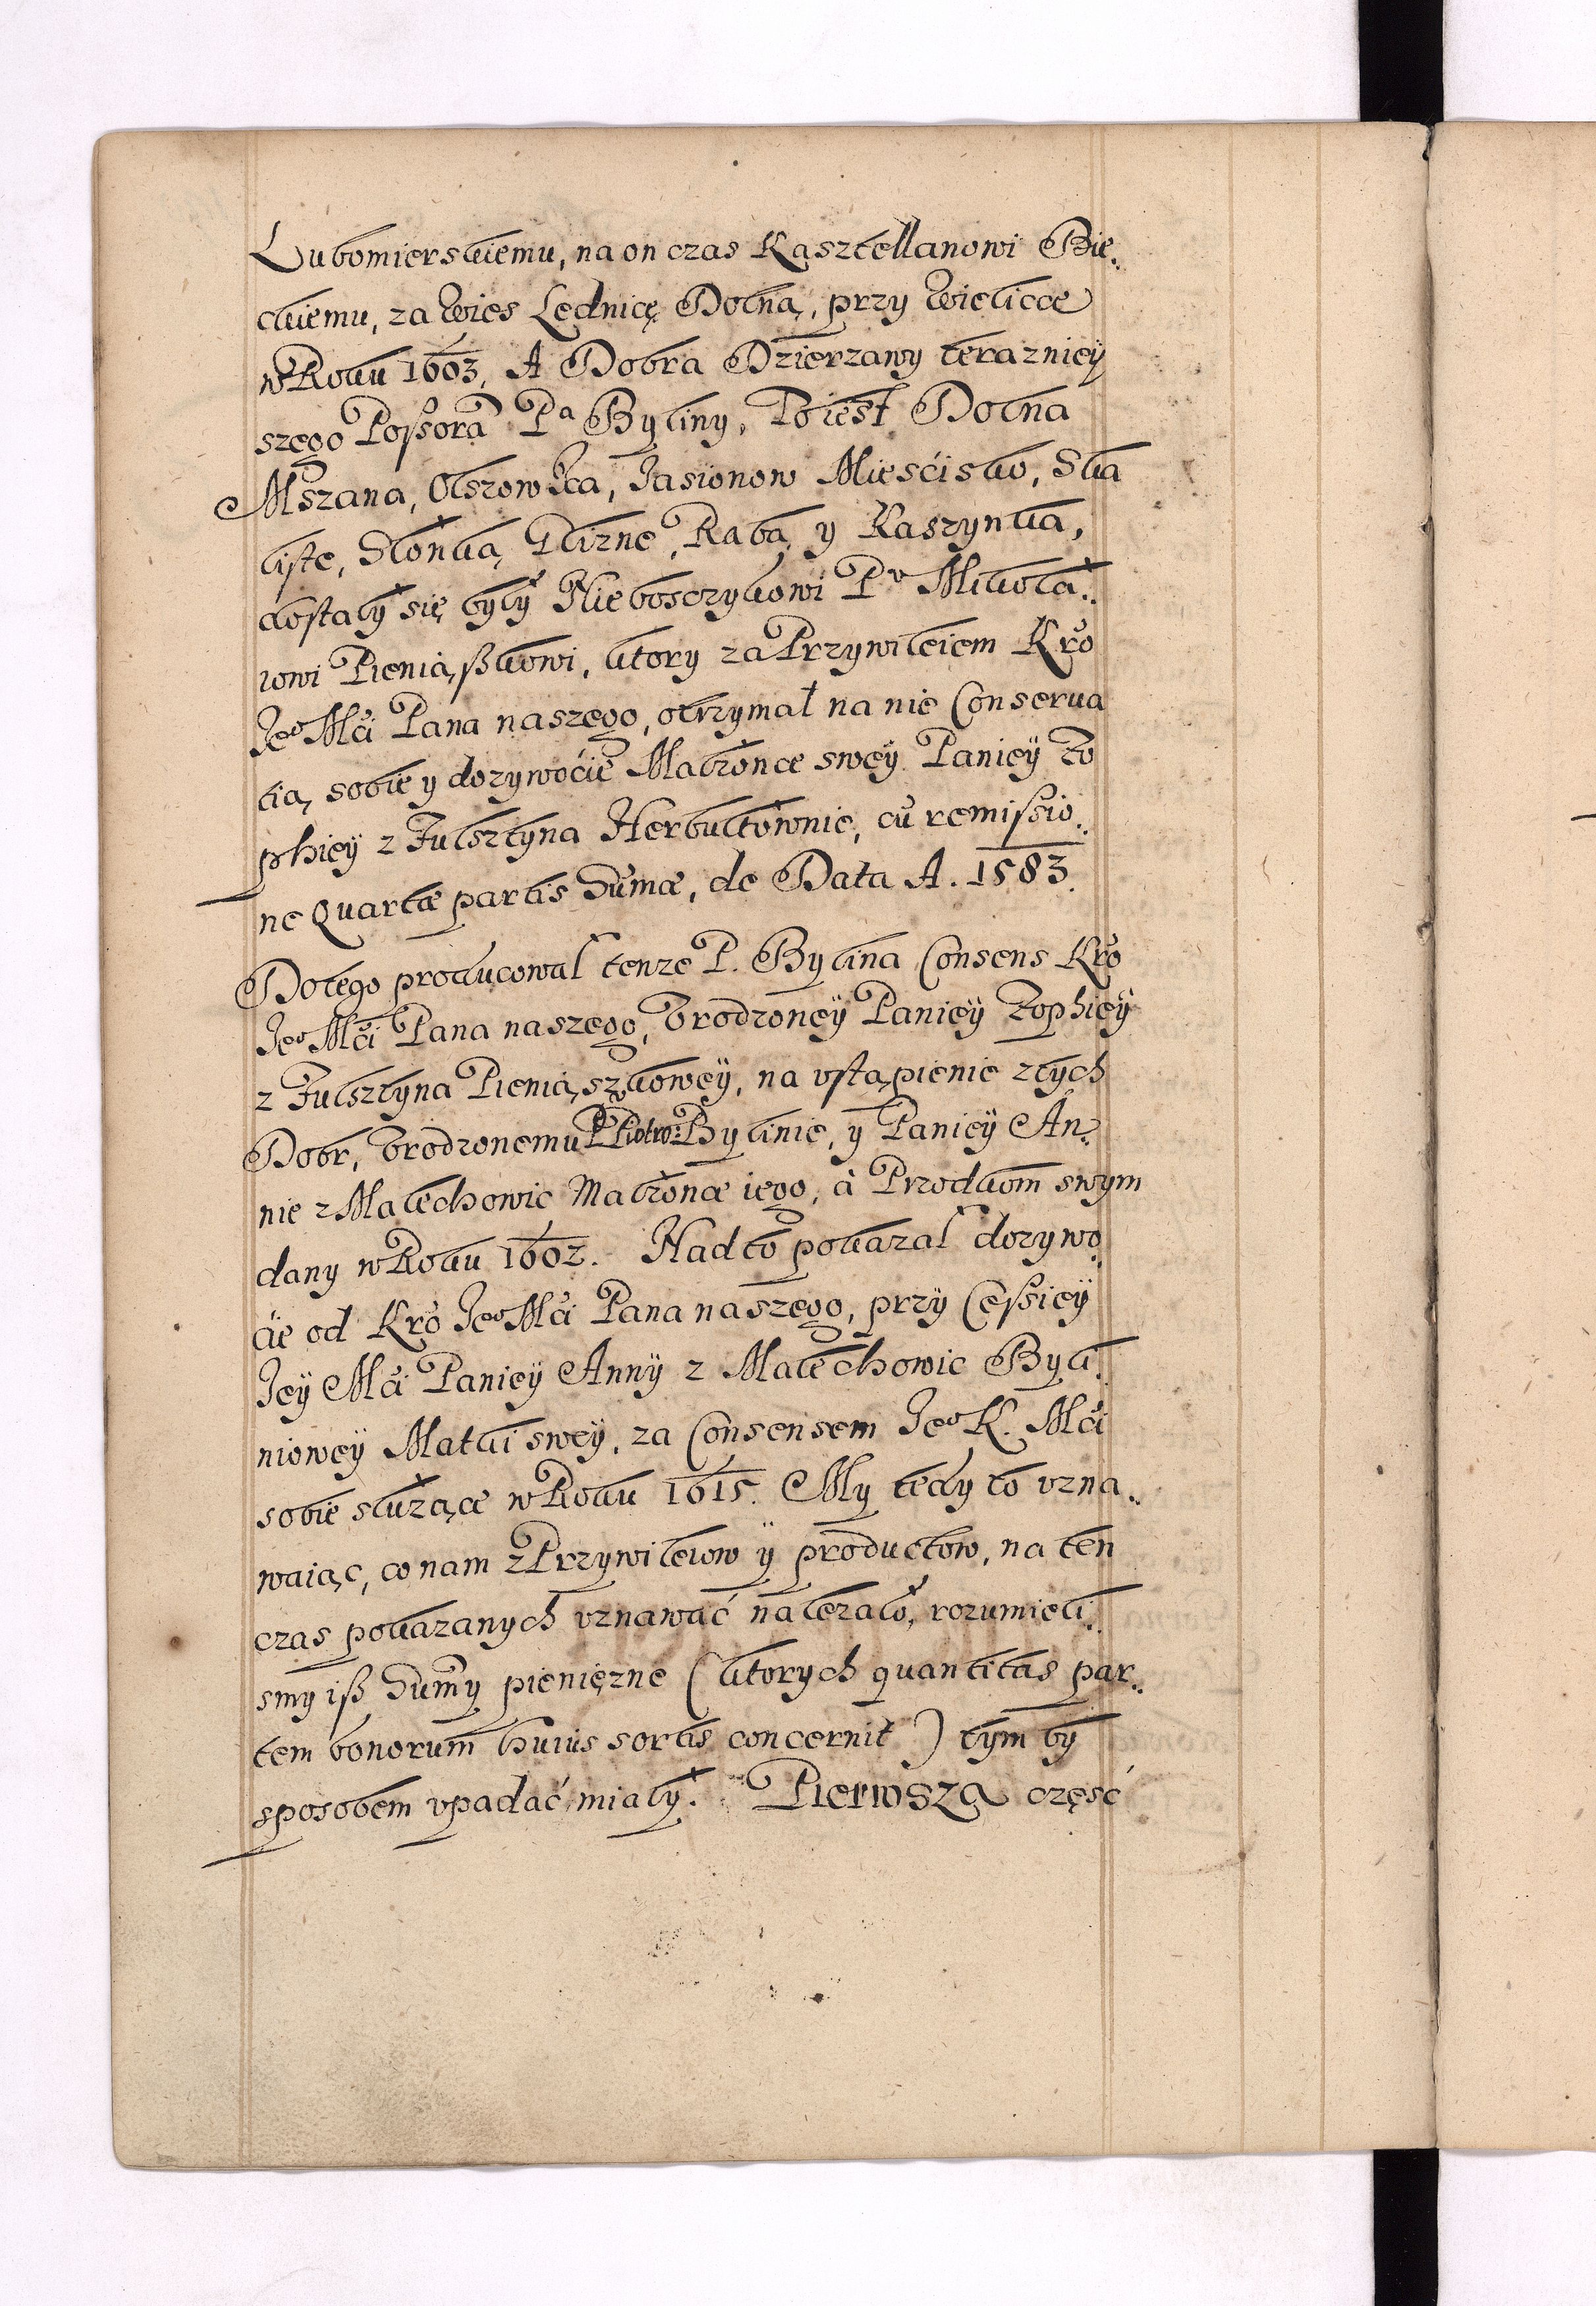 Lubomierskiemu, na on czas Kasztellanowi Bie.
ckiemu, za wies Lednicę Dolną, przy Wieliccę
w Roku 1603, A Dobra Dzierzawy terazniey
szego Poßora Pa Byliny, To iest Dolna
Mszana, Olszowka, Jasionow Mieścisko, Ska
liste, Słonka, Glizne, Raba, y Raszynka,
dostały się były Nieboszczykowi Pu Mikoła.
iowi Pieniąßkowi, ktory za Przywileiem Kro
Jeo Mći Pana naszego, otrzymał na nie Conserua
tią, sobie y dozywoćie Małzonce swey Paniey Zo
phiey z Fulsztyna Herbultownie, cu remißio.
ne Quartæ partis Sumæ, de Data A. 1583.
Do tego producował tenze P. Bylina Consens Kro
Jeo Mći Pana naszego, Vrodzoney Paniey Zophiey
z Fulsztyna Pieniąszkowey, na vstąpienie z tych
Dobr, Vrodzonemu P Piotro: Bylinie, y Paniey An
nie z Malechowic Małzonce iego, a Przodkom swym
dany w Roku 1602. Nad to pokazał dozywo
cie od Kro Jeo Mći Pana naszego, przy Ceßiey
Jey Mći Paniey Anny z Malechowic Byli.
niowey Matki swey, za Consensem Jeo K. Mći
sobie słuzące w Roku 1615. My tedy to vzna.
waiąc, co nam z Przywileiow y productow, na ten
czas pokazanych vznawać nalezało, rozumieli.
smy iß Summy pieniężne (ktorych quantitas par.
tem bonorum huius sortis concernit) tym by
sposobem vpadać miały. Pierwsza część